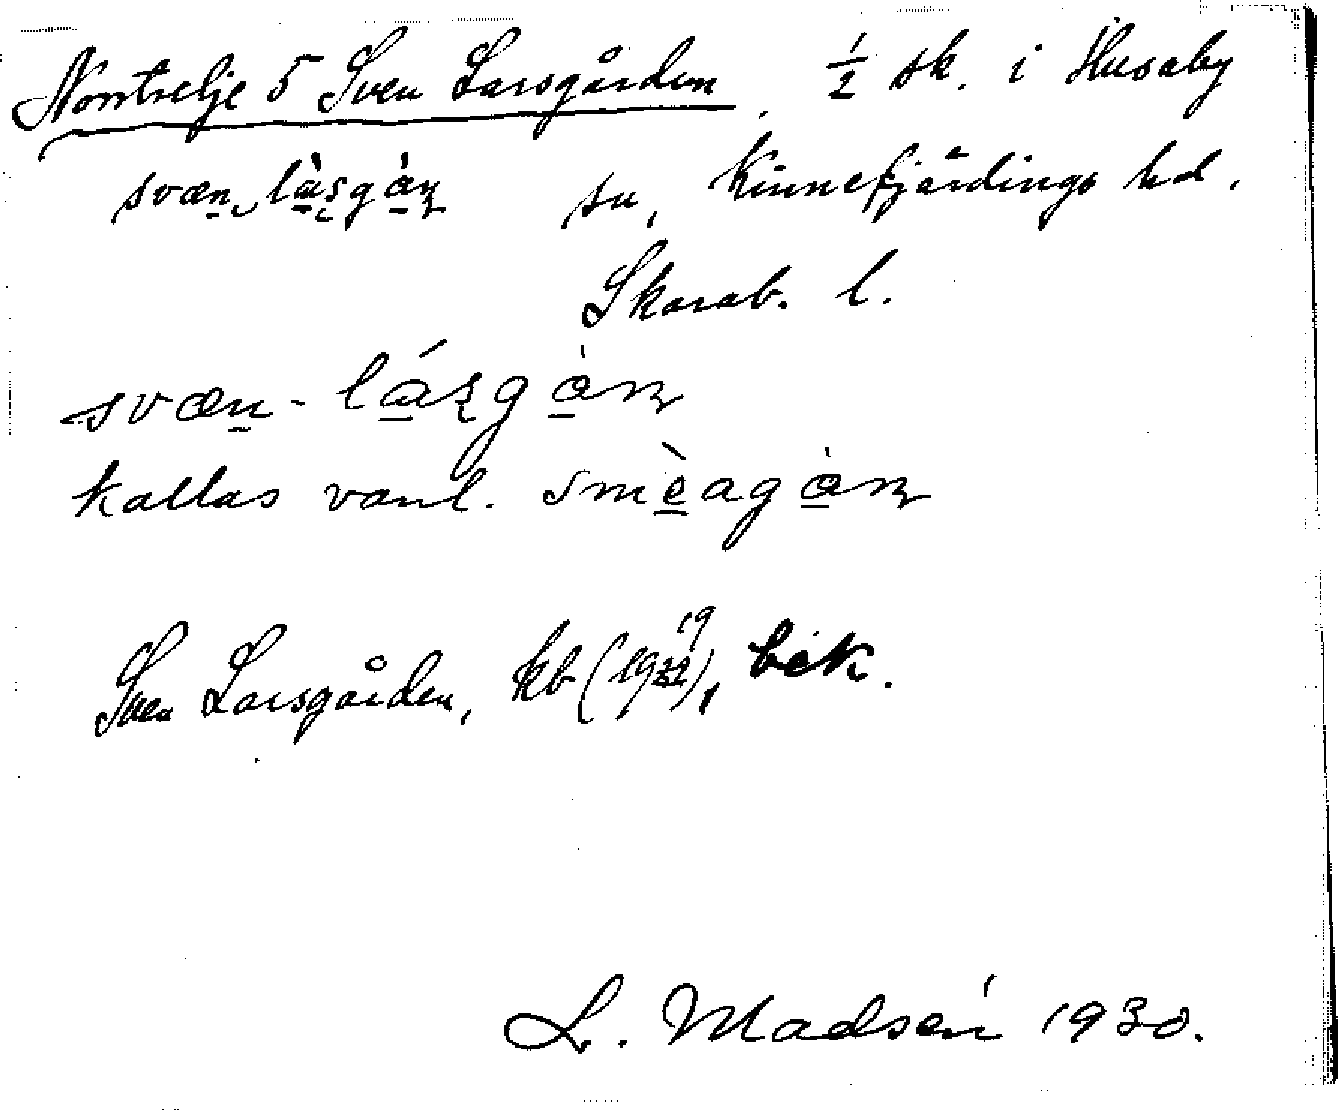 Norrtrelje 5 Sven Larsgården ½ sk. i Husaby
svæn làsgàn sn, Kinnefjärdings hd.
Skarab. l.
svæn-lázgàn
kallas vanl. smèagàn
Sven Larsgården, kb (19 19), bek.
L. Madsén 1930.